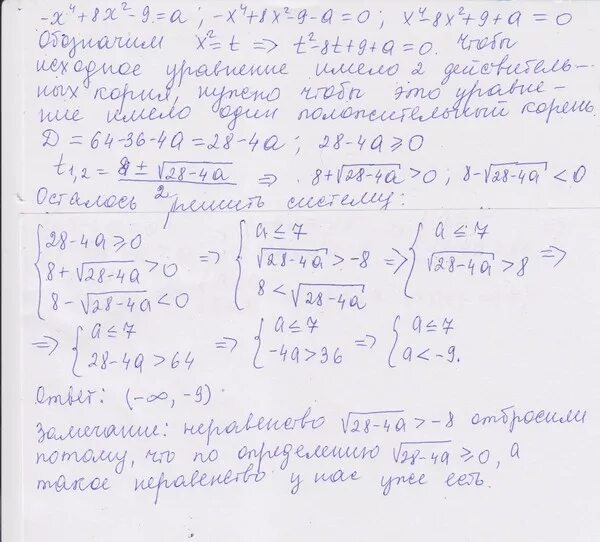 -x⁴+8x²-9=a; -x⁴+8x²-9-a=0; x⁴-8x²+9+a=0
Обозначим x²=t => t²-8t+9+a=0. Чтобы
исходное уравнение имело 2 действитель-
ных корня, нужно чтобы это уравне-
ние имело один положительный корень.
D = 64-36-4a = 28-4a; 28-4a ≥ 0
t₁,₂ = (8 ± √(28-4a))/2 => 8+√(28-4a) > 0; 8-√(28-4a) < 0
Осталось решить систему:
{28-4a ≥ 0; 8+√(28-4a) > 0; 8-√(28-4a) < 0 => {a ≤ 7; √(28-4a) > -8; 8 < √(28-4a) => {a ≤ 7; √(28-4a) > 8 =>
=> {a ≤ 7; 28-4a > 64 => {a ≤ 7; -4a > 36 => {a ≤ 7; a < -9.
Ответ: (-∞, -9)
Замечание: неравенство √(28-4a) > -8 отбросили
потому, что по определению √(28-4a) ≥ 0, а
такое неравенство у нас уже есть.